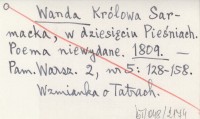 Wanda Królowa Sar-
macka, w dziesięciu Pieśniach.
Poema niewydane. 1809. —
Pam. Warsz. 2, nr 5: 128-158.
Wzmianka o Tatrach.